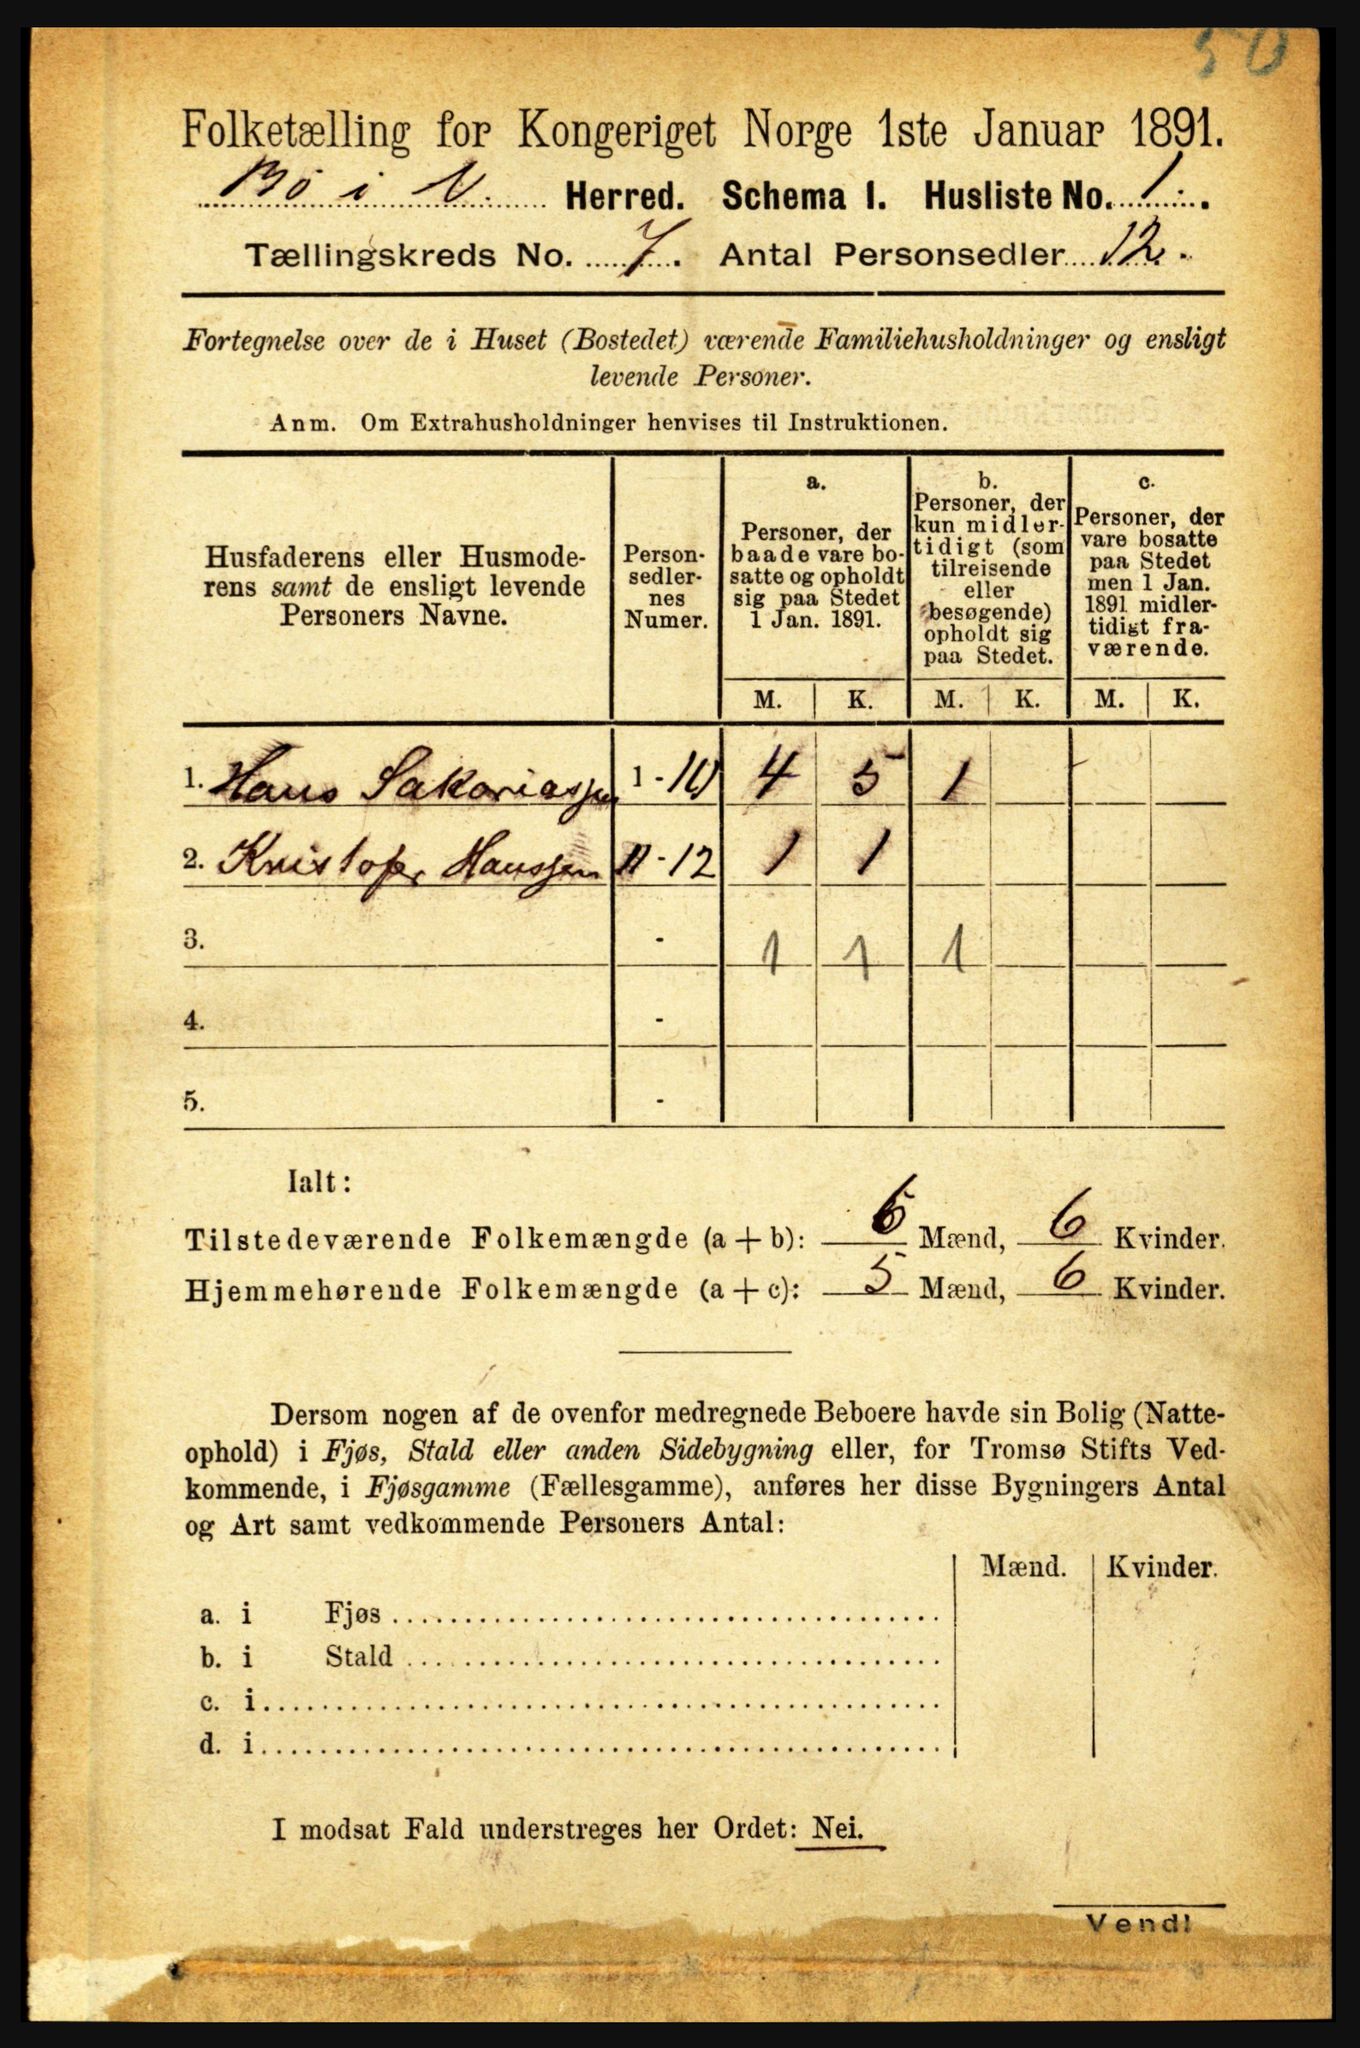 50
Folketælling for Kongeriget Norge 1ste Januar 1891.
Bö i V. Herred. Schema I. Husliste No. 1.
Tællingskreds No. 7. Antal Personsedler 12.
Fortegnelse over de i Huset (Bostedet) værende Familiehusholdninger og ensligt
levende Personer.
Anm. Om Extrahusholdninger henvises til Instruktionen.
Husfaderens eller Husmode-
rens samt de ensligt levende
Personers Navne.
Person-
sedler-
nes
Numer.
a.
Personer, der
baade vare bo-
satte og opholdt
sig paa Stedet
1 Jan. 1891.
b.
Personer, der
kun midler-
tidigt (som
tilreisende
eller
besøgende)
opholdt sig
paa Stedet.
c.
Personer, der
vare bosatte
paa Stedet
men 1 Jan.
1891 midler-
tidigt fra-
værende.
M. K. M. K. M. K.
1. Hans Sakariassen 1 - 10 4 5 1
2. Kristofer Hanssen 11 - 12 1 1
3. - 1 1 1
4. -
5. -
Ialt:
Tilstedeværende Folkemængde (a + b): 6 Mænd, 6 Kvinder.
Hjemmehørende Folkemængde (a + c): 5 Mænd, 6 Kvinder.
Dersom nogen af de ovenfor medregnede Beboere havde sin Bolig (Natte-
ophold) i Fjøs, Stald eller anden Sidebygning eller, for Tromsø Stifts Ved-
kommende, i Fjøsgamme (Fællesgamme), anføres her disse Bygningers Antal
og Art samt vedkommende Personers Antal:
Mænd. Kvinder.
a. i Fjøs
b. i Stald
c. i
d. i
I modsat Fald understreges her Ordet: Nei.
Vend!